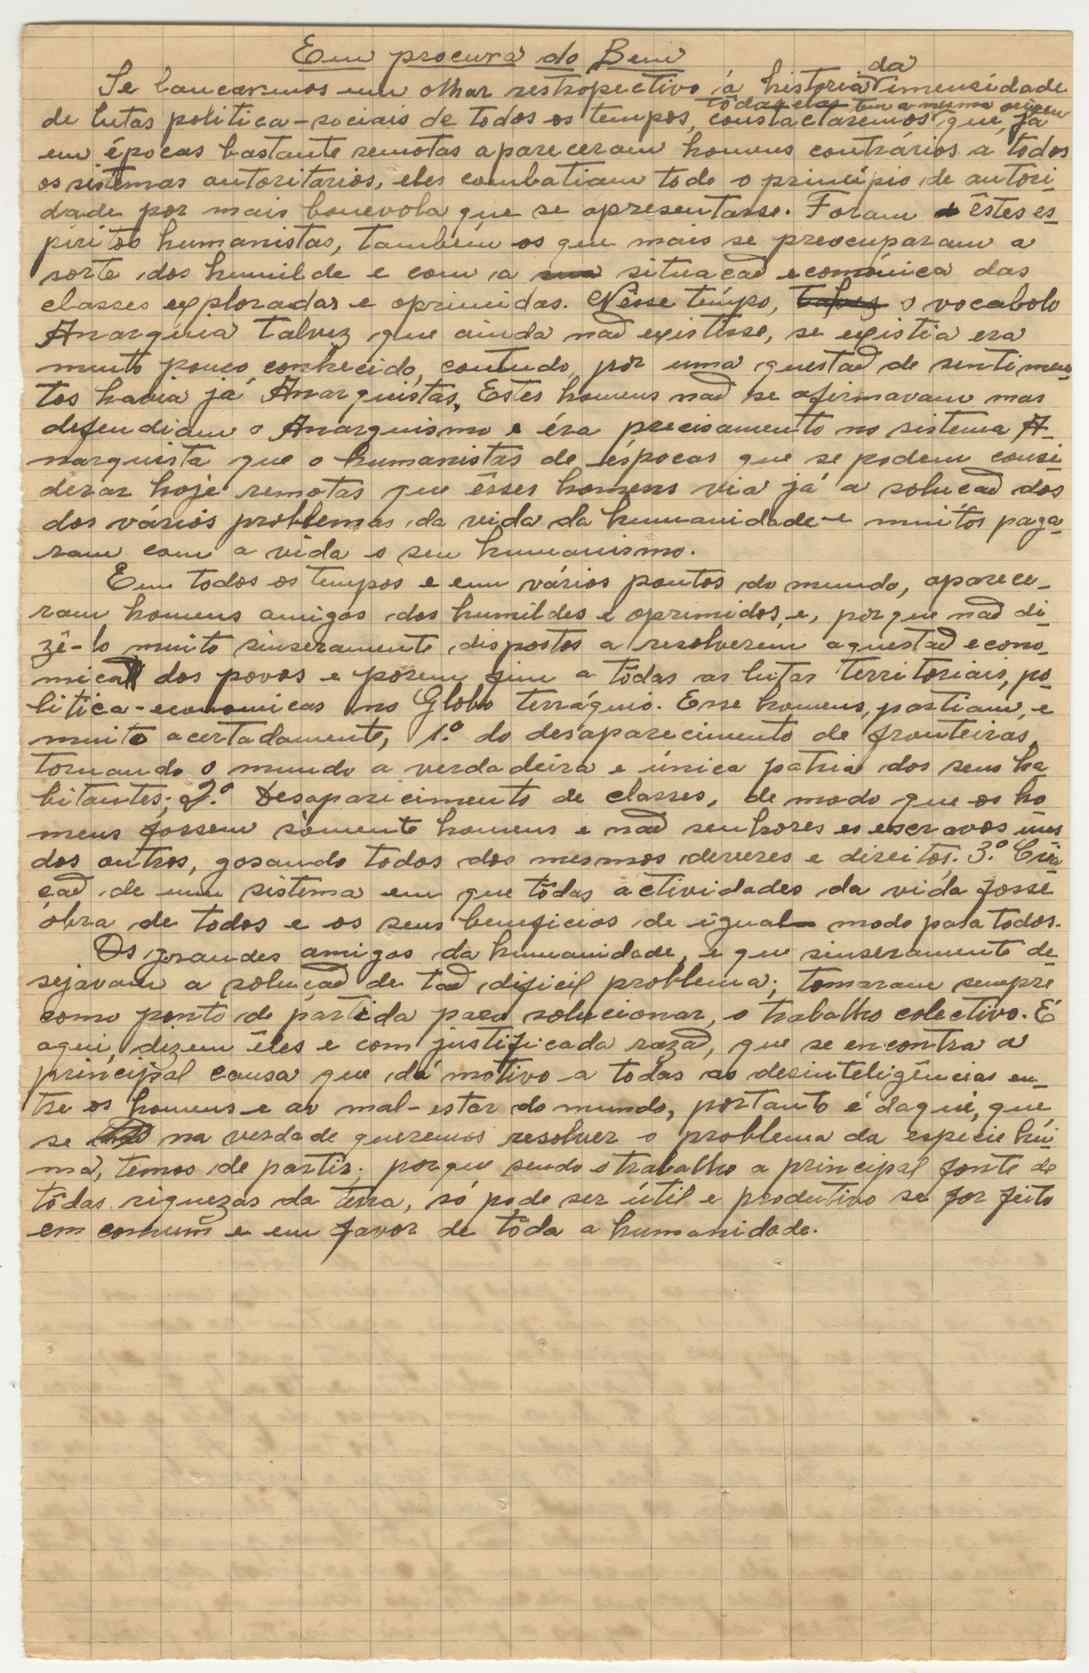 Em procura do Bem
Se lancarmos um olhar restropectivo á historia da imensidade
todas elas tem a mesma origem
de lutas politica-sociais de todos os tempos, constactaremos que, já
em épocas bastante remotas apareceram homens contrários a todos
os sistemas autoritarios, eles combatiam todo o princípio de autori-
dade por mais benevola que se apresentasse. Foram êstes es-
piritos humanistas, também os que mais se preocuparam a
sorte dos humilde e com a situacaõ económica das
classes exploradas e oprimidas. Nêsse tempo, talvez o vocabolo
Anarquia talvez que ainda naõ existisse, se existia era
muito pouco conhecido, contudo, por uma questaõ de sentimen-
tos havia já Anarquistas, Estes homens naõ se afirmavam mas
defendiam o Anarquismo e éra precisamento no sistema A-
narquista que o humanistas de éspocas que se podem consi-
derar hoje remotas que êsses homens via já a solucaõ dos
dos vários problemas da vida da humanidade e muitos paga-
ram com a vida o seu humanismo.
Em todos os tempos e em vários pontos do mundo, aparece-
ram homens amigos dos humildes e oprimidos, e, porque naõ di-
zê-lo muito sinseramente dispostos a resolverem aquestaõ econo-
mica dos povos e porem fim a tôdas as lutas territoriais, po-
litica-economicas no Globo terráquio. Esse homens, partiam, e
muito acertadamente, 1.º do desaparecimento de fronteiras,
tornando o mundo a verdadeira e única patria dos seus ha
bitantes; 2.º Desaparicimento de classes, de modo que os ho
mens fossem sòmente homens e naõ senhores es escravos uns
dos outros, gosando todos dos mesmos deveres e direitos. 3.º Cria
çaõ de um sistema em que tôdas actividades da vida fosse
óbra de todos e os seus beneficios de igual modo para todos.
Os grandes amigos da humanidade, e que sinseramente de-
sejavam a soluçaõ de taõ dificil problema; tomaram sempre
como ponto de partida para solucionar, o trabalho colectivo. É
aqui, dizem êles e com justificada razaõ, que se encontra a
principal causa que dá motivo a todas as desinteligências en-
tre os homens e ao mal-estar do mundo, portanto é daqui, que,
se na verdade queremos resolver o problema da espécie hu-
ma, temos de partir. porque sendo o trabalho a principal fonte de
tôdas riquezas da terra, só pode ser útil e produtivo se for feito
em comum e em favor de tôda a humanidade.